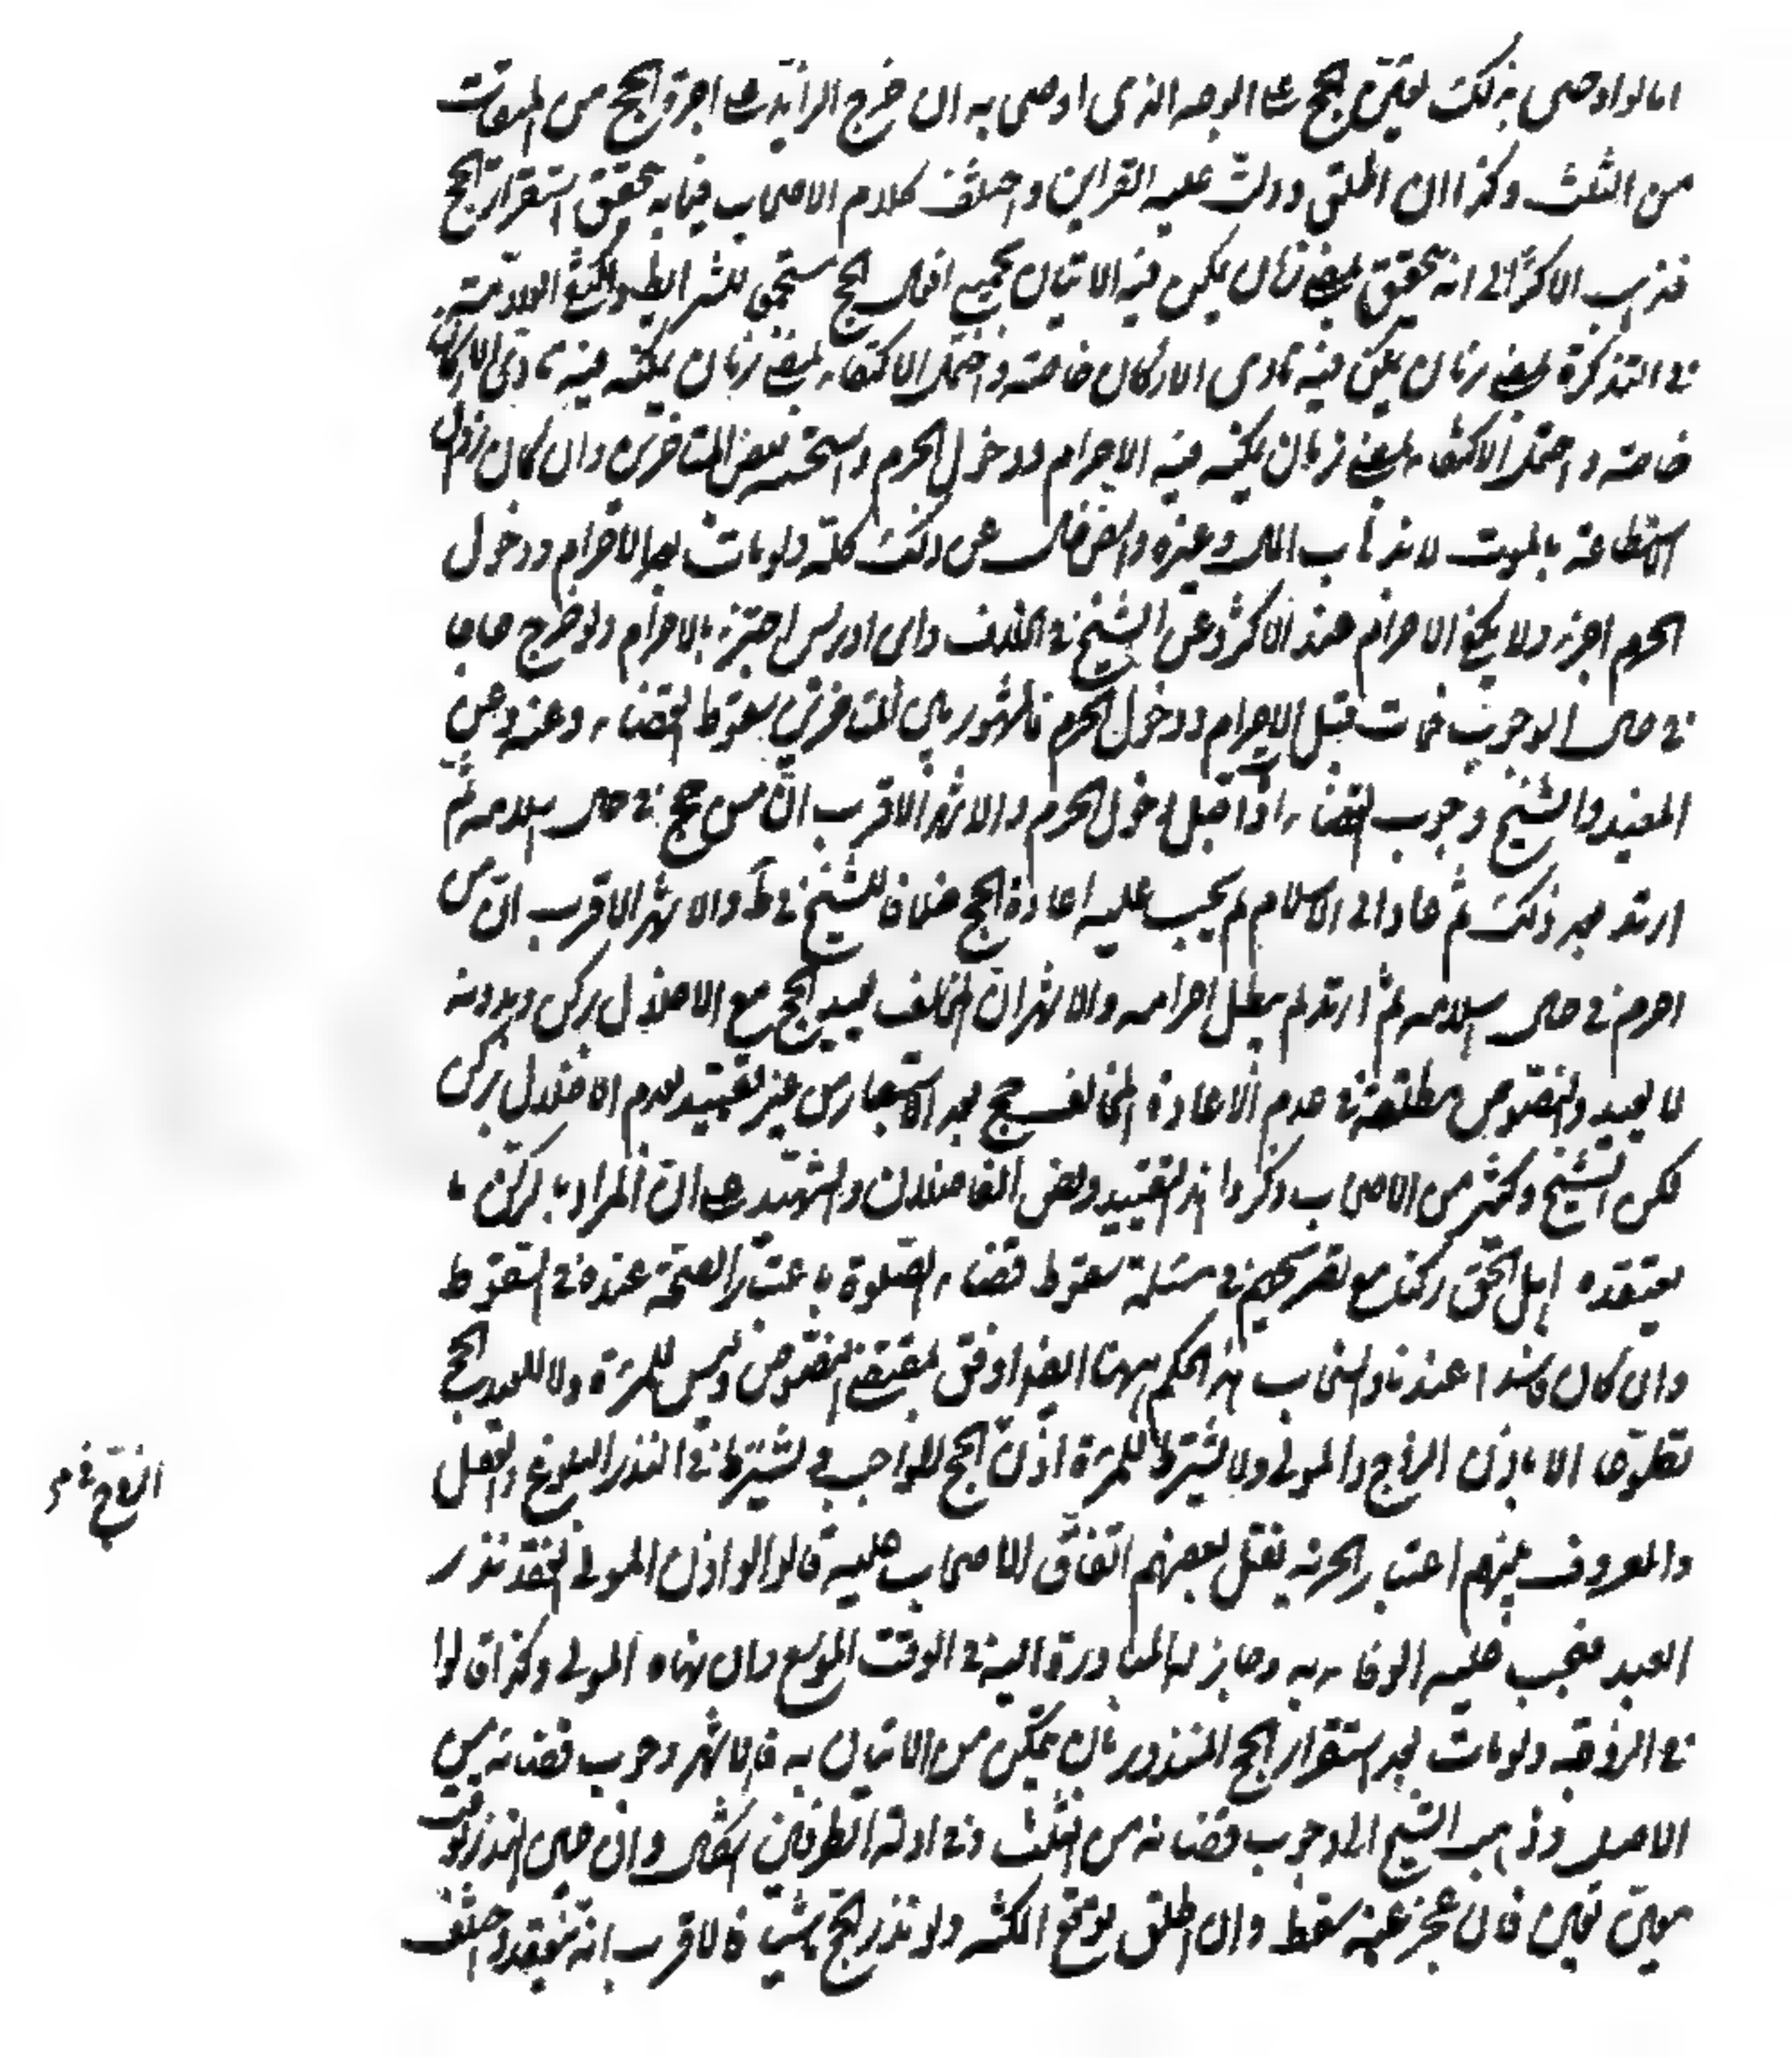 اما لو اوصى بذلك تعيّن الحج على الوجه الذى اوصى به ان خرج الزايد على اجرة الحج من الميقات
من الثلث وكذا ان اطلق ودلت عليه القراين واختلف كلام الاصحاب فيما به تحقق استقرار الحج
فذهب الاكثر الى انه تحقق بمضى زمان يمكن فيه الاتيان بجميع افعال الحج مستجمعا للشرايط واكتفى العلامة
فى التذكرة بمضى زمان يمكن فيه تادى الاركان خاصة واحتمل الاكتفاء بمضى زمان يمكنه فيه تادى الاركان
خاصة واحتمل الاكتفاء بمضى زمان يمكنه فيه الاحرام ودخول الحرم واستحسنه بعض المتاخرين وان كان زوال
الاستطاعة بالموت لا بذهاب المال وغيره والنص خال عن ذلك كله ولو مات بعد الاحرام ودخول
الحرم اجزءه ولا يكفى الاحرام عند الاكثر وعن الشيخ فى الخلاف وابن ادريس اجتزء بالاحرام ولو خرج حاجا
فى عام الوجوب فمات قبل الاحرام ودخول الحرم فالمشهور بين المتاخرين سقوط القضاء وعنه وعن
المفيد والشيخ وجوب القضاء اذا قبل دخول الحرم والاشهر الاقرب انّ من حج فى حال اسلامه ثم
ارتد بعد ذلك ثم عاد الى الاسلام لم يجب عليه اعادة الحج خلافا للشيخ فى ط والاشهر الاقرب ان من
احرم فى حال اسلامه ثم ارتد لم يبطل احرامه والاشهر ان المخالف يعيد الحج مع الاخلال بركن وبدونه
لا يعيد والنصوص مطلقة فى عدم الاعادة المخالف حج بعد الاستبصار من غير تقييد بعدم الاخلال بركن
لكن الشيخ وكثير من الاصحاب ذكروا هذا التقييد ونص الفاضلان والشهيد على ان المراد بالركن ما
يعتقده اهل الحق ركنا مع تصريحهم فى مسئلة سقوط قضاء الصلوة باعتبار الصحة عنده فى السقوط
وان كان فاسدا عندنا وانسحاب هذا الحكم ههنا ايضا اوفق بمقتضى النصوص وليس للمرءة ولا للعبد الحج
تطوّعا الا باذن الزوج والمولى ولا يشترط للمرءة اذن الحج الواجب فى يشترط فى النذر البلوغ والعقل
والمعروف بينهم اعتبار الحرية نقل بعضهم اتفاق الاصحاب عليه قالوا لو اذن المولى انعقد نذر
العبد فيجب عليه الوفاء به وجاز له المبادرة اليه فى الوقت الموسع وان نهاه المولى وكذا قالوا
فى الزوجة ولو مات بعد استقرار الحج المنذور بان يمكن من الاتيان به فالاشهر وجوب قضائه من
الاصل وذهب الشيخ الى وجوب قضائه من الثلث وفى ادلة الطرفين اشكال وان عين النذر بوقت
معيّن تعين فان عجز عنه سقط وان اطلق توقع المكنة ولو نذر الحج ماشيا فالاقرب انه ينعقد واختلف